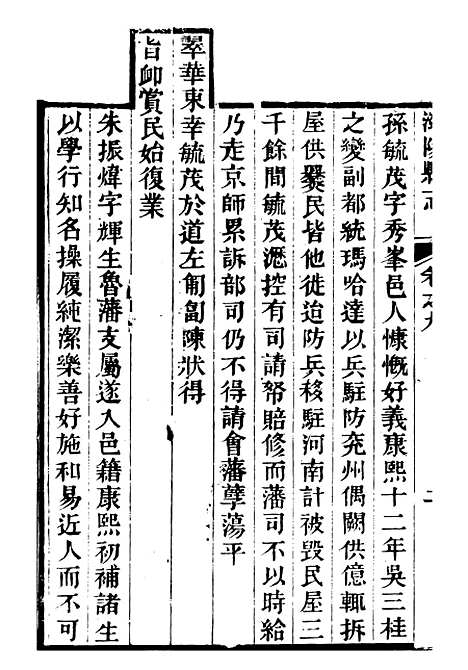 滋陽縣志 卷之九
孫毓茂字秀峯邑人慷慨好義康熙十二年吳三桂
之變副都統瑪哈達以兵駐防兖州偶闕供億輒拆
屋供爨民皆他徙迨防兵移駐河南計被毀民屋三
千餘間毓茂懣控有司請帑賠修而藩司不以時給
乃走京師累訴部司仍不得請會藩孽蕩平
翠華東幸毓茂於道左匍匐陳狀得
旨卹賞民始復業
朱振煒字輝生魯藩支屬遂入邑籍康熙初補諸生
以學行知名操履純潔樂善好施和易近人而不可